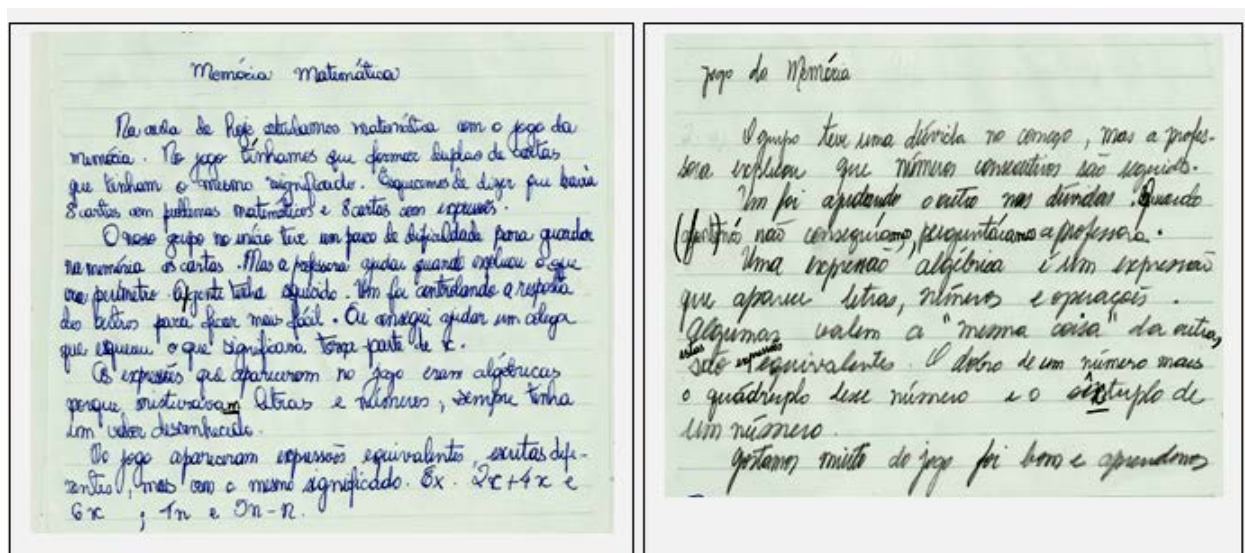 Memória Matemática
Na aula de hoje estudamos matemática com o jogo da
memória. No jogo tínhamos que formar duplas de cartas
que tinham o mesmo significado. Esquecemos de dizer que havia
8 cartas com problemas matemáticos e 8 cartas com expressões.
O nosso grupo no início teve um pouco de dificuldade para guardar
na memória as cartas. Mas a professora ajudou quando explicou o que
era perímetro. A gente tinha esquecido. Um foi controlando a resposta
dos outros para ficar mais fácil. Eu consegui ajudar um colega
que esqueceu o que significava terça parte de x.
As expressões que apareceram no jogo eram algébricas
porque misturavam letras e números, sempre tinha
um valor desconhecido.
No jogo apareceram expressões equivalentes, escritas dife-
rentes, mas com o mesmo significado. Ex. 2x+4x e
6x ; 4n e 5n-n.
Jogo da Memória
O grupo teve uma dúvida no começo, mas a profes-
sora explicou que números consecutivos são seguidos.
Um foi ajudando o outro nas dúvidas. Quando
nós não conseguíamos, perguntávamos a professora.
Uma expressão algébrica é um expressão
que aparece letras, números e operações.
Algumas valem a "mesma coisa" da outra,
estas expressão
são equivalentes. O dobro de um número mais
o quádruplo desse número e o sêxtuplo de
um número.
Gostamos muito do jogo foi bom e aprendemos